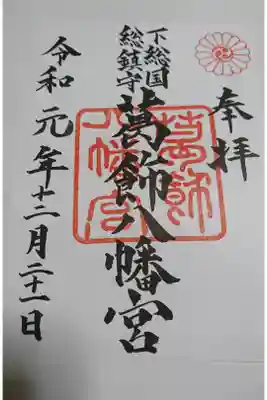 奉拝
下総国
総鎮守
葛飾八幡宮
令和元年十二月二十一日
葛飾
八幡宮